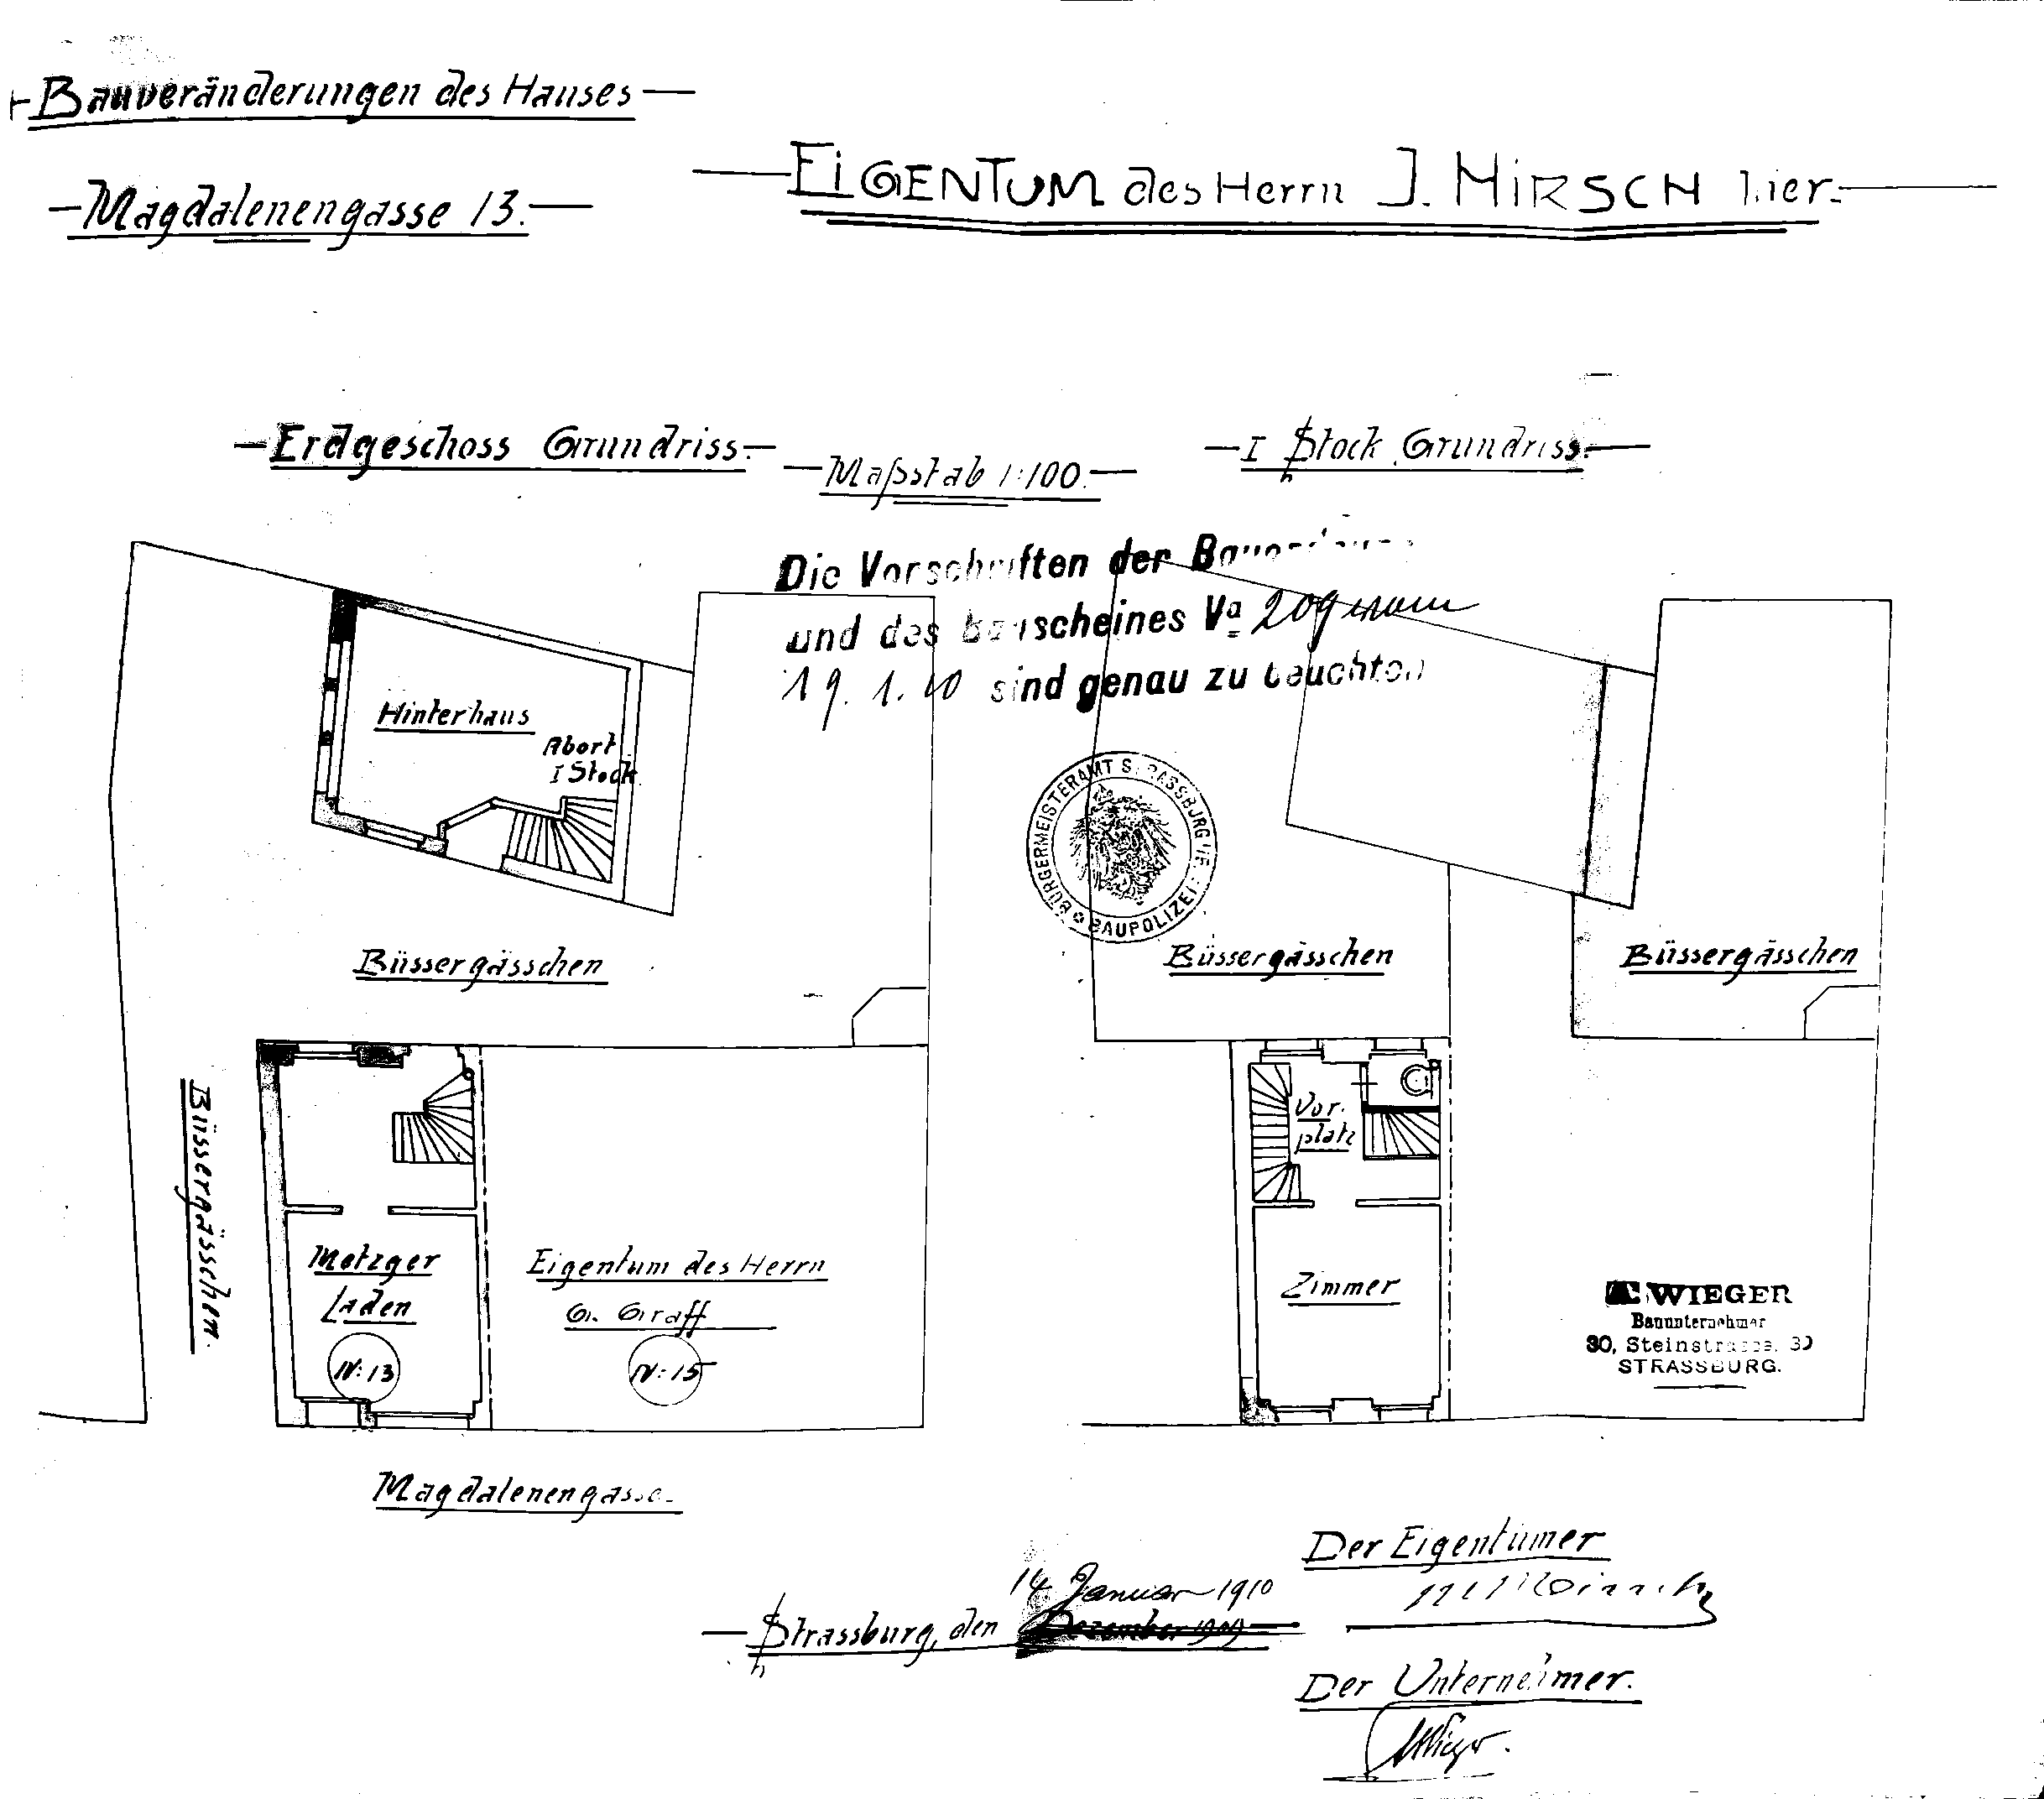 Bauveränderungen des Hauses
Magdalenengasse 13.
EiGENTUM des Herrn J. HiRSCH hier.
Erdgeschoss Grundriss.
Maßstab 1:100.
I Stock Grundriss.
Die Vorschriften der
und des Bauscheines Va 209 vom
19. 1. 10 sind genau zu beachten
Hinterhaus
Abort
I Stock
BÜRGERMEISTERAMT STRASSBURG I/E
BAUPOLIZEI
Büssergässchen
Büssergässchen
Büssergässchen
Büssergässchen.
Vor-
platz
Metzger
Laden
N: 13
Eigentum des Herrn
G. Graff
N: 15
Zimmer
WIEGER
Bauunternehmer
30, Steinstrasse, 30
STRASSBURG.
Magdalenengasse.
Der Eigentümer
14 Januar 1910
Strassburg, den Dezember 1909
Der Unternehmer.
Wieger.